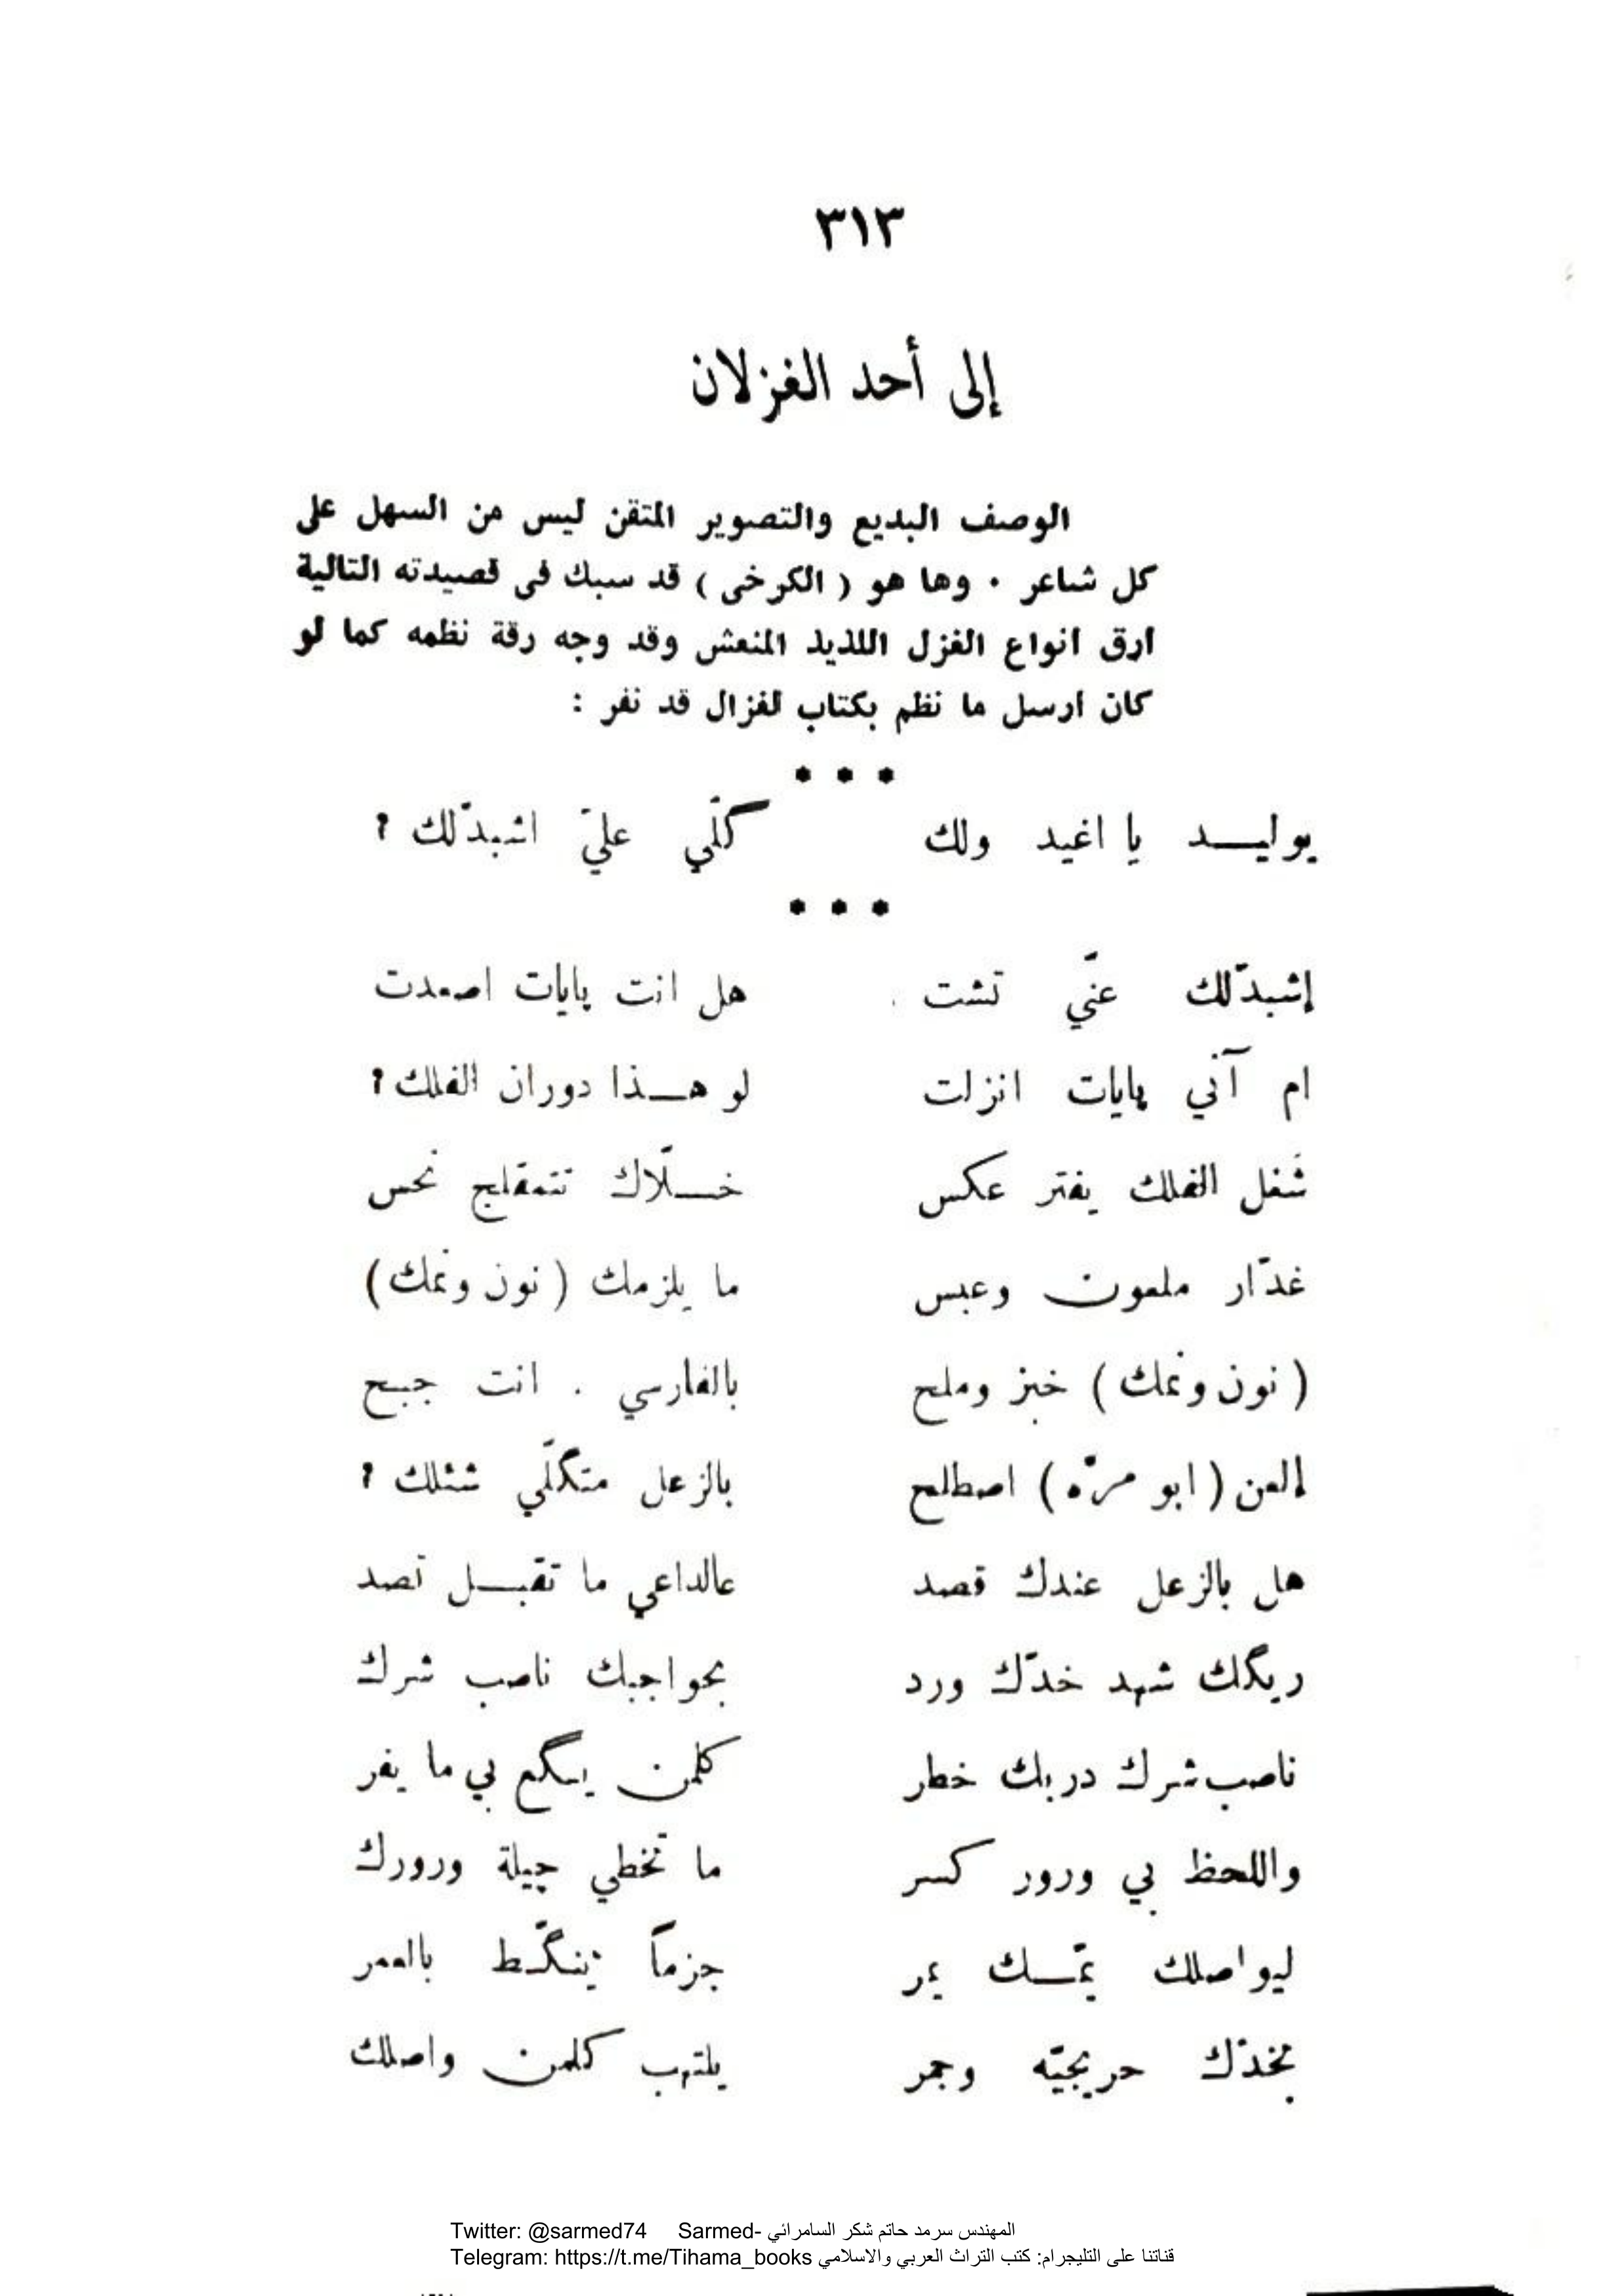 ٣١٣
إلى أحد الغزلان
الوصف البديع والتصوير المتقن ليس من السهل على
كل شاعر ٠ وها هو ( الكرخى ) قد سبك فى قصيدته التالية
ارق انواع الغزل اللذيذ المنعش وقد وجه رقة نظمه كما لو
كان ارسل ما نظم بكتاب لغزال قد نفر :
* * *
يوليد يا اغيد ولك گلّي عليّ اشبدّلك ؟
* * *
إشبدّلك عنّي تشت هل انت پايات اصعدت
ام آني پايات انزلت لو هذا دوران الفلك ؟
شَغل الفلك يفتر عكس خلّاك تتمقلج نحس
غدّار ملعون وعبس ما يلزمك ( نون ونمك )
( نون ونمك ) خبز وملح بالفارسي . انت جبح
إلعن ( ابو مرّه ) اصطلح بالزعل متگلّي شثلك ؟
هل بالزعل عندك قصد عالداعي ما تقبل تصد
ريگك شهد خدّك ورد بحواجبك ناصب شرك
ناصب شرك دربك خطر كلمن يگع بي ما يفر
واللحظ بي ورور كسر ما تخطي چيلة ورورك
ليواصلك يمّك يمر جزماً ينگط بالعمر
بخدّك حريجيّه وجمر يلتهب كلمن واصلك
Twitter: @sarmed74 Sarmed- المهندس سرمد حاتم شكر السامرائي
Telegram: https://t.me/Tihama_books قناتنا على التليجرام: كتب التراث العربي والاسلامي